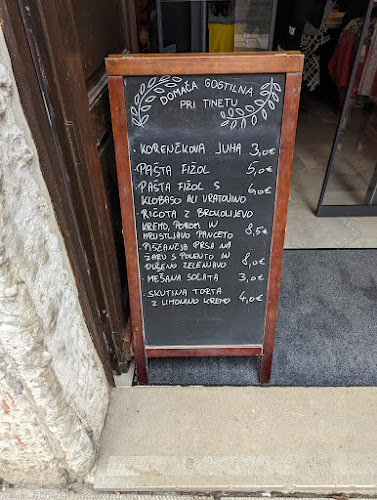 DOMAČA GOSTILNA
PRI TINETU
· KORENČKOVA JUHA 3,0€
· PAŠTA FIŽOL 5,0€
· PAŠTA FIŽOL S 6,0€
KLOBASO ALI VRATOVINO
· RIČOTA Z BROKOLIJEVO
KREMO, POROM IN
HRUSTLJAVO PANCETO 8,5€
· PIŠČANČJA PRSA NA
ŽARU S POLENTO IN 8,0€
DUŠENO ZELENJAVO
· MEŠANA SOLATA 3,0€
· SKUTINA TORTA
Z LIMONINO KREMO 4,0€